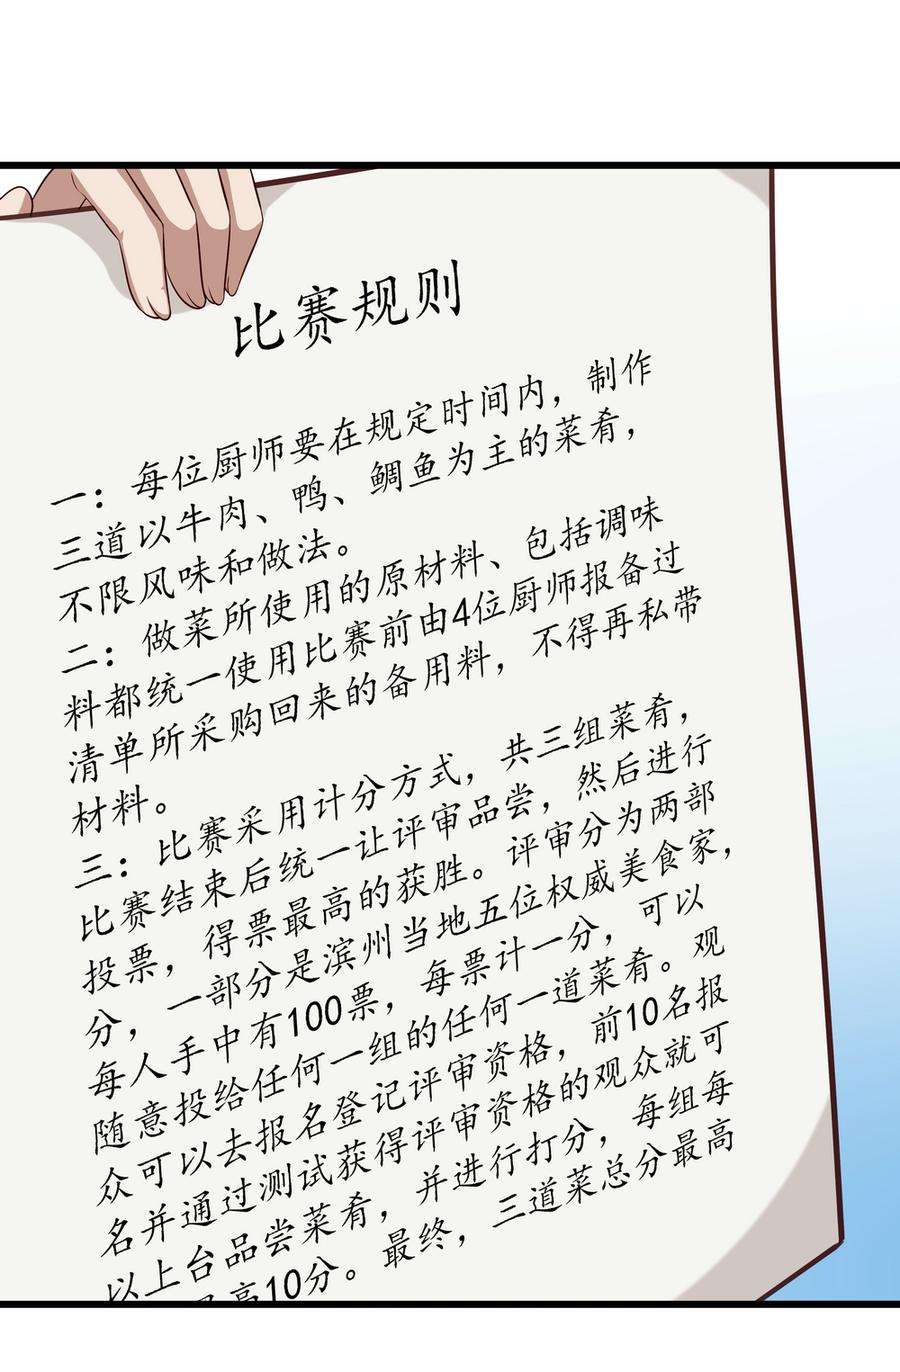 比赛规则
一：每位厨师要在规定时间内，制作
三道以牛肉、鸭、鲷鱼为主的菜肴，
不限风味和做法。
二：做菜所使用的原材料、包括调味
料都统一使用比赛前由4位厨师报备过
清单所采购回来的备用料，不得再私带
材料。
三：比赛采用计分方式，共三组菜肴，
比赛结束后统一让评审品尝，然后进行
投票，得票最高的获胜。评审分为两部
分，一部分是滨州当地五位权威美食家，
每人手中有100票，每票计一分，可以
随意投给任何一组的任何一道菜肴。观
众可以去报名登记评审资格，前10名报
名并通过测试获得评审资格的观众就可
以上台品尝菜肴，并进行打分，每组每
高10分。最终，三道菜总分最高